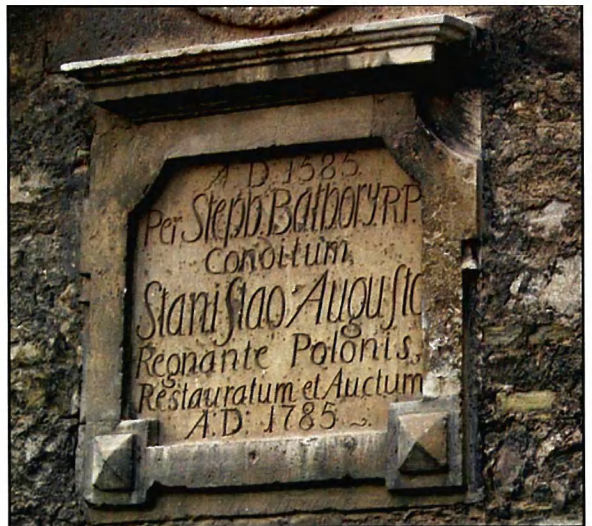 A. D. 1585.
Per Steph. Bathory R.P.
Conditum,
Stanislao Augusto
Regnante Polonis,
Restauratum et Auctum
A. D. 1785